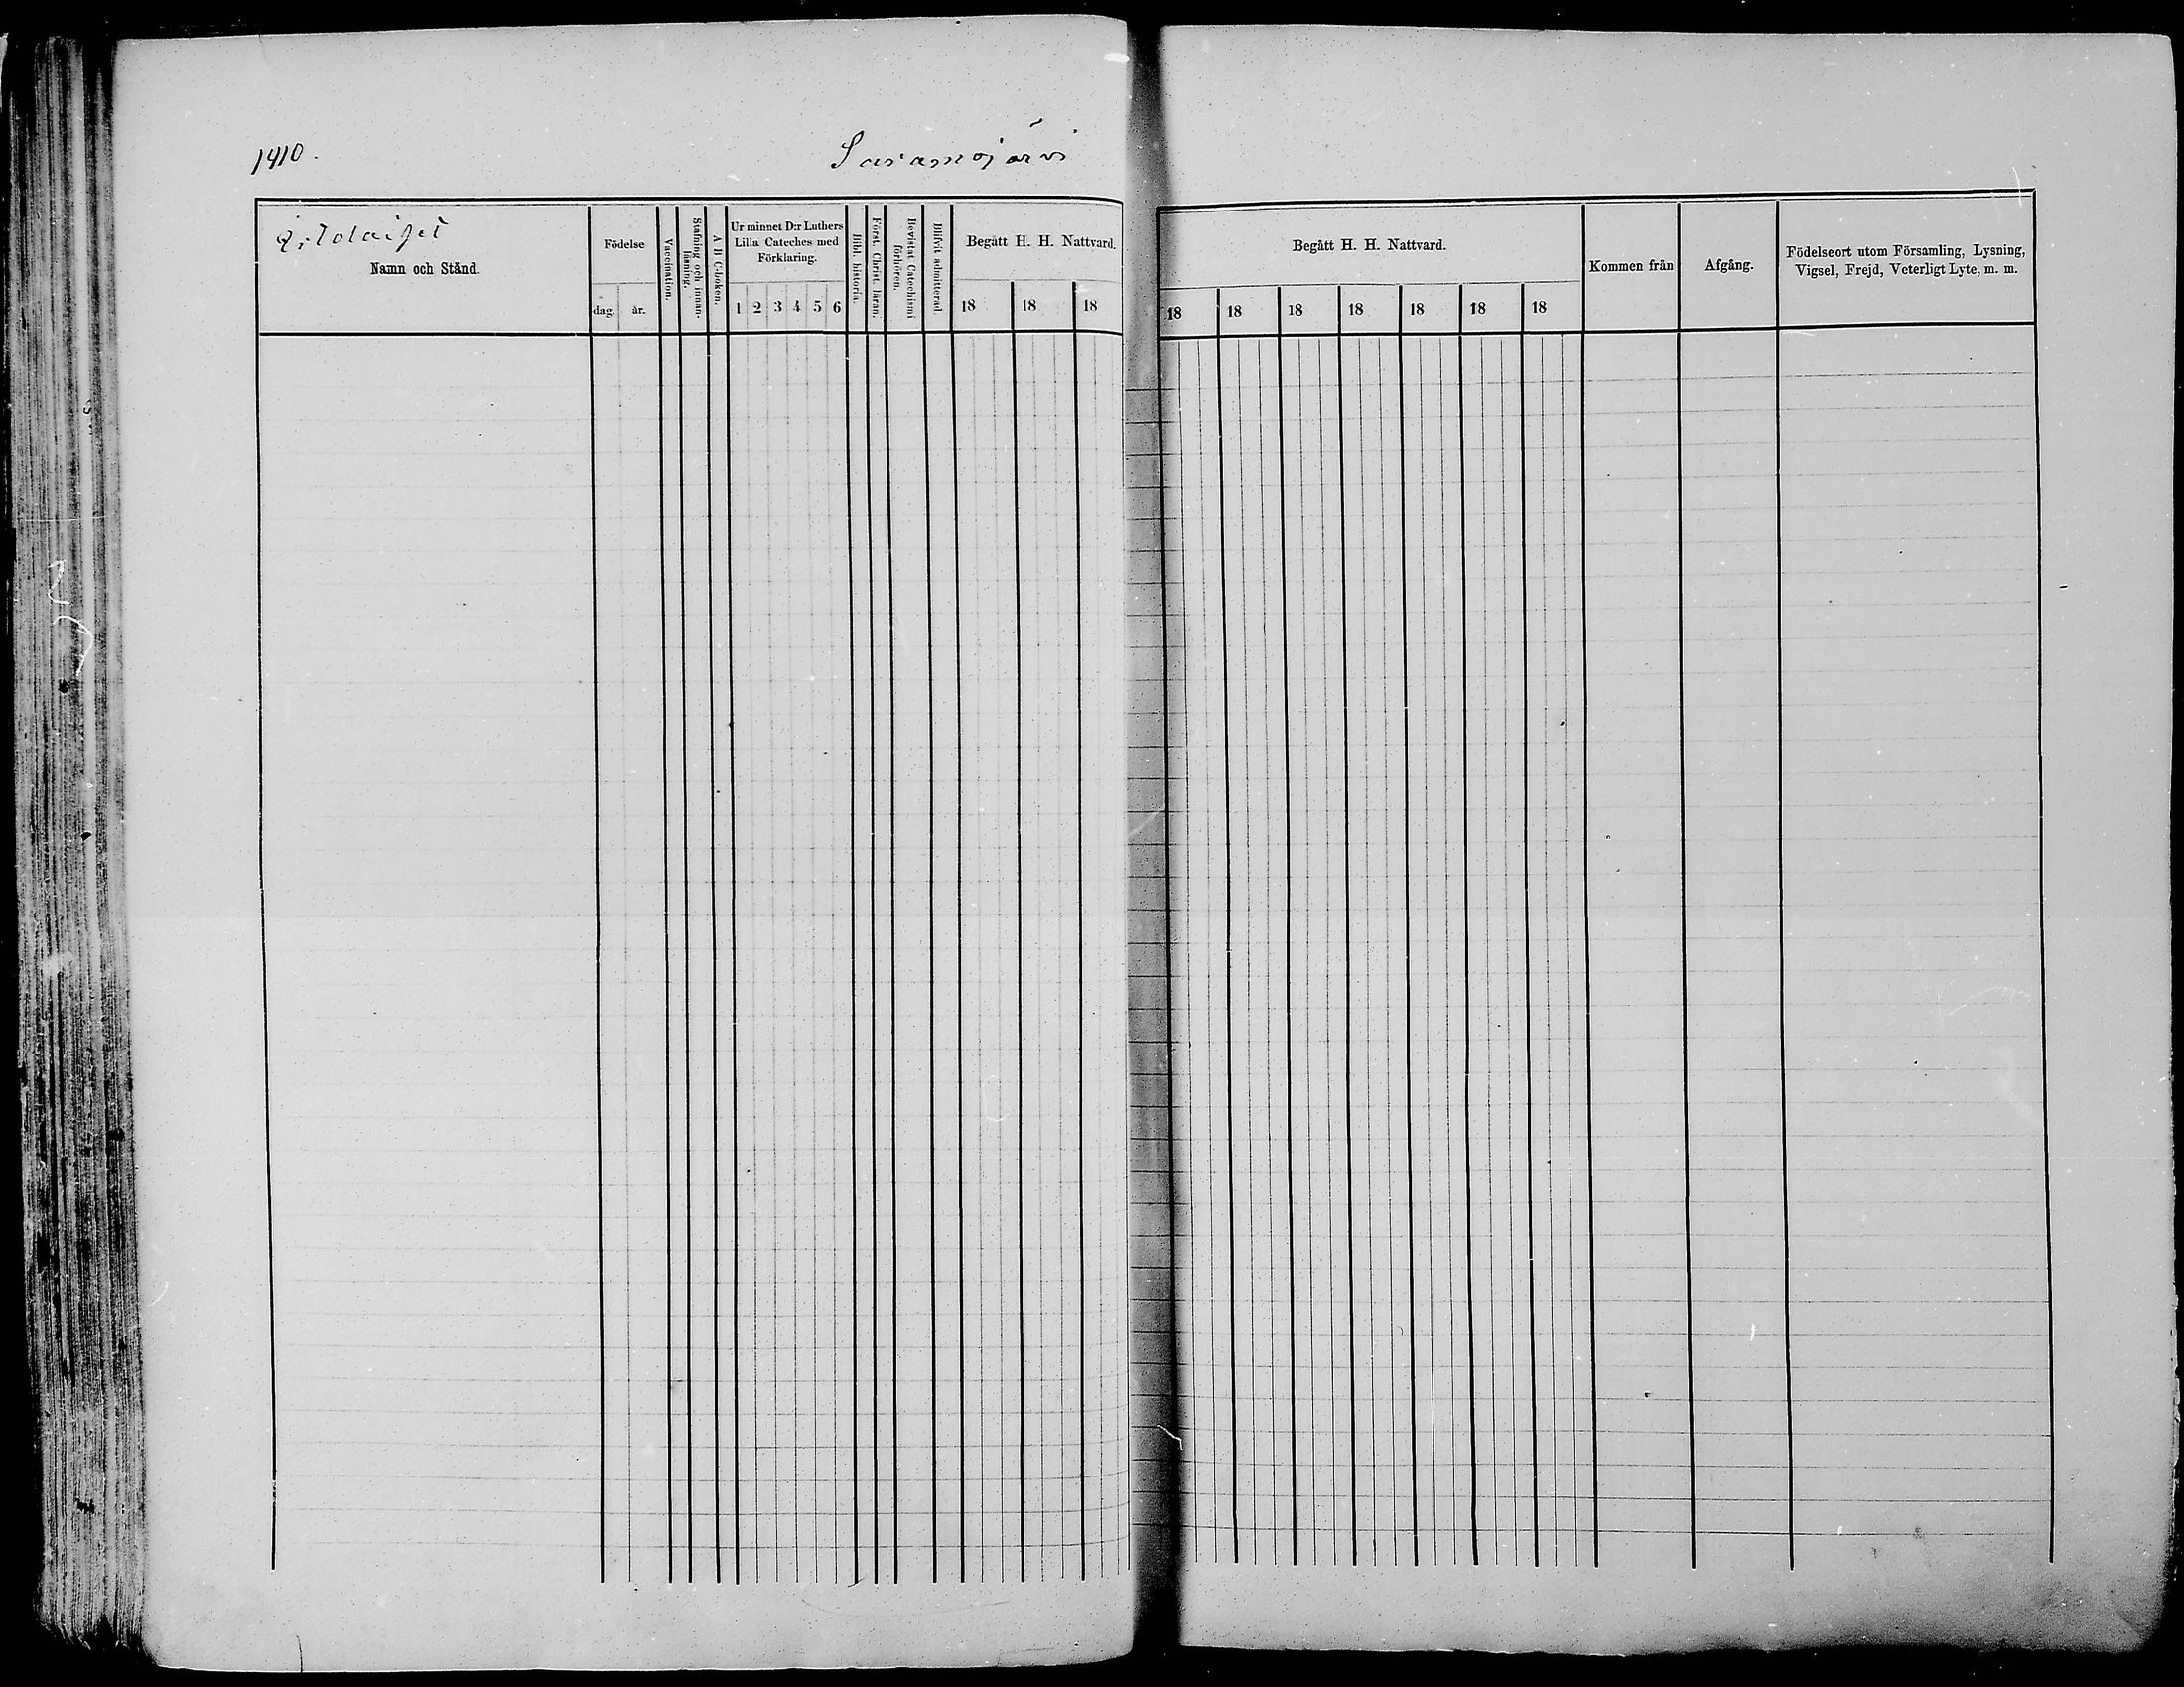 1410.
Saramojärvi
Namn och Stånd.
Födelse
dag. år.
Vaccination.
Stafning och innan-
läsning.
A B C-boken.
Ur minnet D:r Luthers
Lilla Cateches med
Förklaring.
1 2 3 4 5 6
Bibl. historia.
Först. Christ. läran.
Bevistat Catechismi
förhören.
Blifvit admitterad
Begått H. H. Nattvard.
18 18 18
Begått H. H. Nattvard.
18 18 18 18 18 18 18
Kommen från
Afgång.
Födelseort utom Församling, Lysning,
Vigsel, Frejd, Veterligt Lyte, m. m.